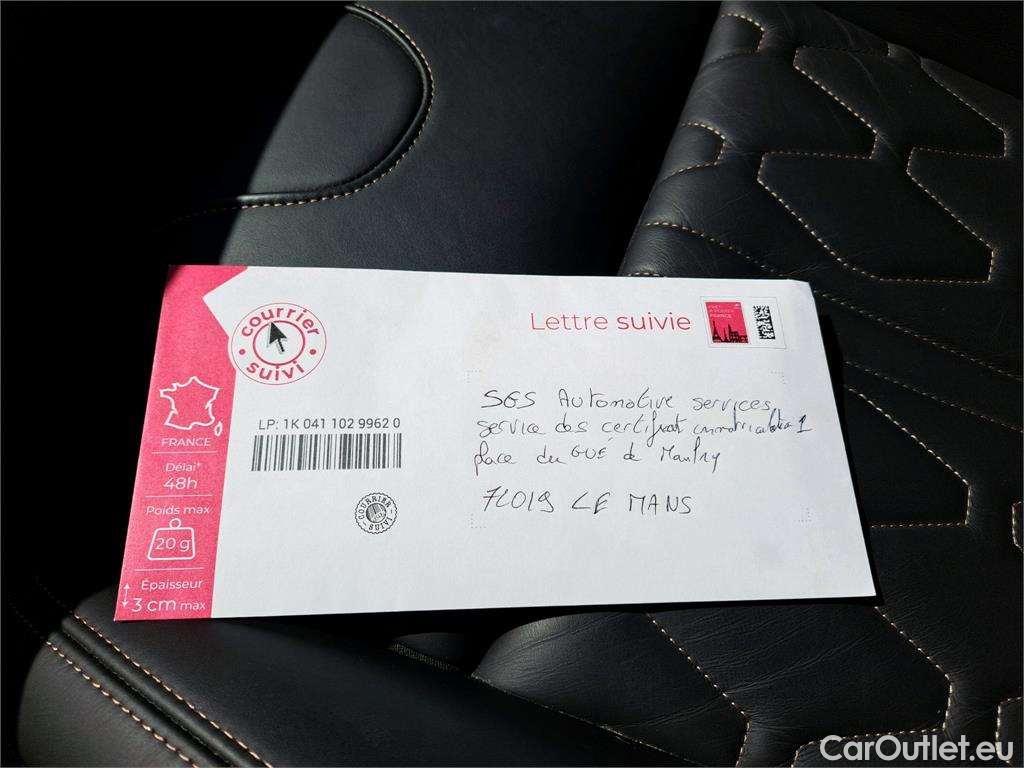 courrier
suivi
Lettre suivie
FRANCE
FRANCE
Délai*
48h
Poids max
20 g
Épaisseur
3 cm max
LP: 1K 041 102 9962 0
COURRIER
SUIVI
SGS Automotive services
service des certificat immatriculation 1
place du GUÉ de Maulny
72019 LE MANS
CarOutlet.eu